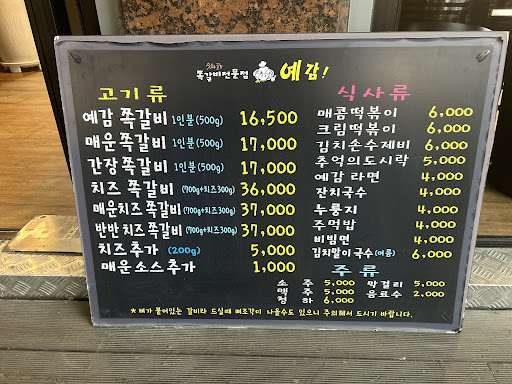 쪽갈비전문점 예감!
고기류
예감 쪽갈비 1인분(500g) 16,500
매운 쪽갈비 1인분(500g) 17,000
간장 쪽갈비 1인분(500g) 17,000
치즈 쪽갈비 (700g+치즈300g) 36,000
매운치즈 쪽갈비 (700g+치즈300g) 37,000
반반치즈 쪽갈비 (700g+치즈300g) 37,000
치즈추가 (200g) 5,000
매운소스추가 1,000
식사류
매콤떡볶이 6,000
크림떡볶이 6,000
김치손수제비 6,000
추억의도시락 5,000
예감 라면 4,000
잔치국수 4,000
누룽지 4,000
주먹밥 4,000
비빔면 4,000
김치말이국수(여름) 6,000
주류
소주 5,000 막걸리 5,000
맥주 5,000 음료수 2,000
청하 6,000
*뼈가 붙어있는 갈비라 드실때 뼈조각이 나올수도 있으니 주의해서 드시기 바랍니다.